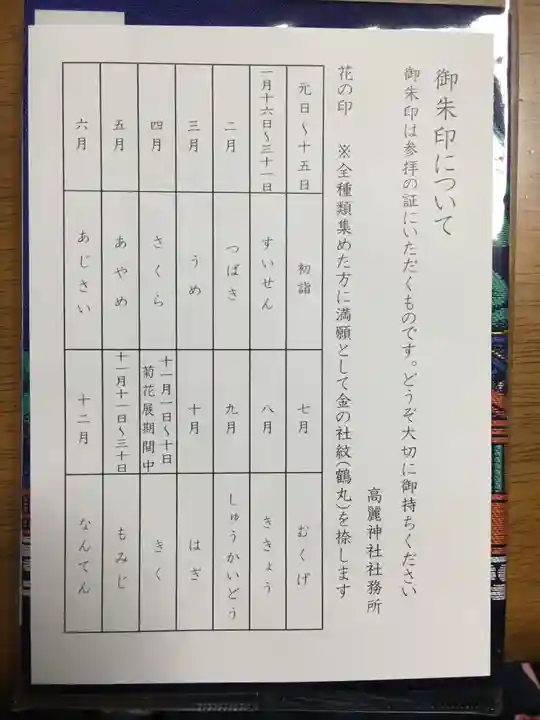 御朱印について
御朱印は参拝の証にいただくものです。どうぞ大切に御持ちください
高麗神社社務所
花の印　※全種類集めた方に満願として金の社紋(鶴丸)を捺します
元日～十五日　初詣　七月　おくげ
一月十六日～三十一日　すいせん　八月　ききょう
二月　つばき　九月　しゅうかいどう
三月　うめ　十月　はぎ
四月　さくら　十一月一日～十日
菊花展期間中　きく
五月　あやめ　十一月十一日～三十日　もみじ
六月　あじさい　十二月　なんてん